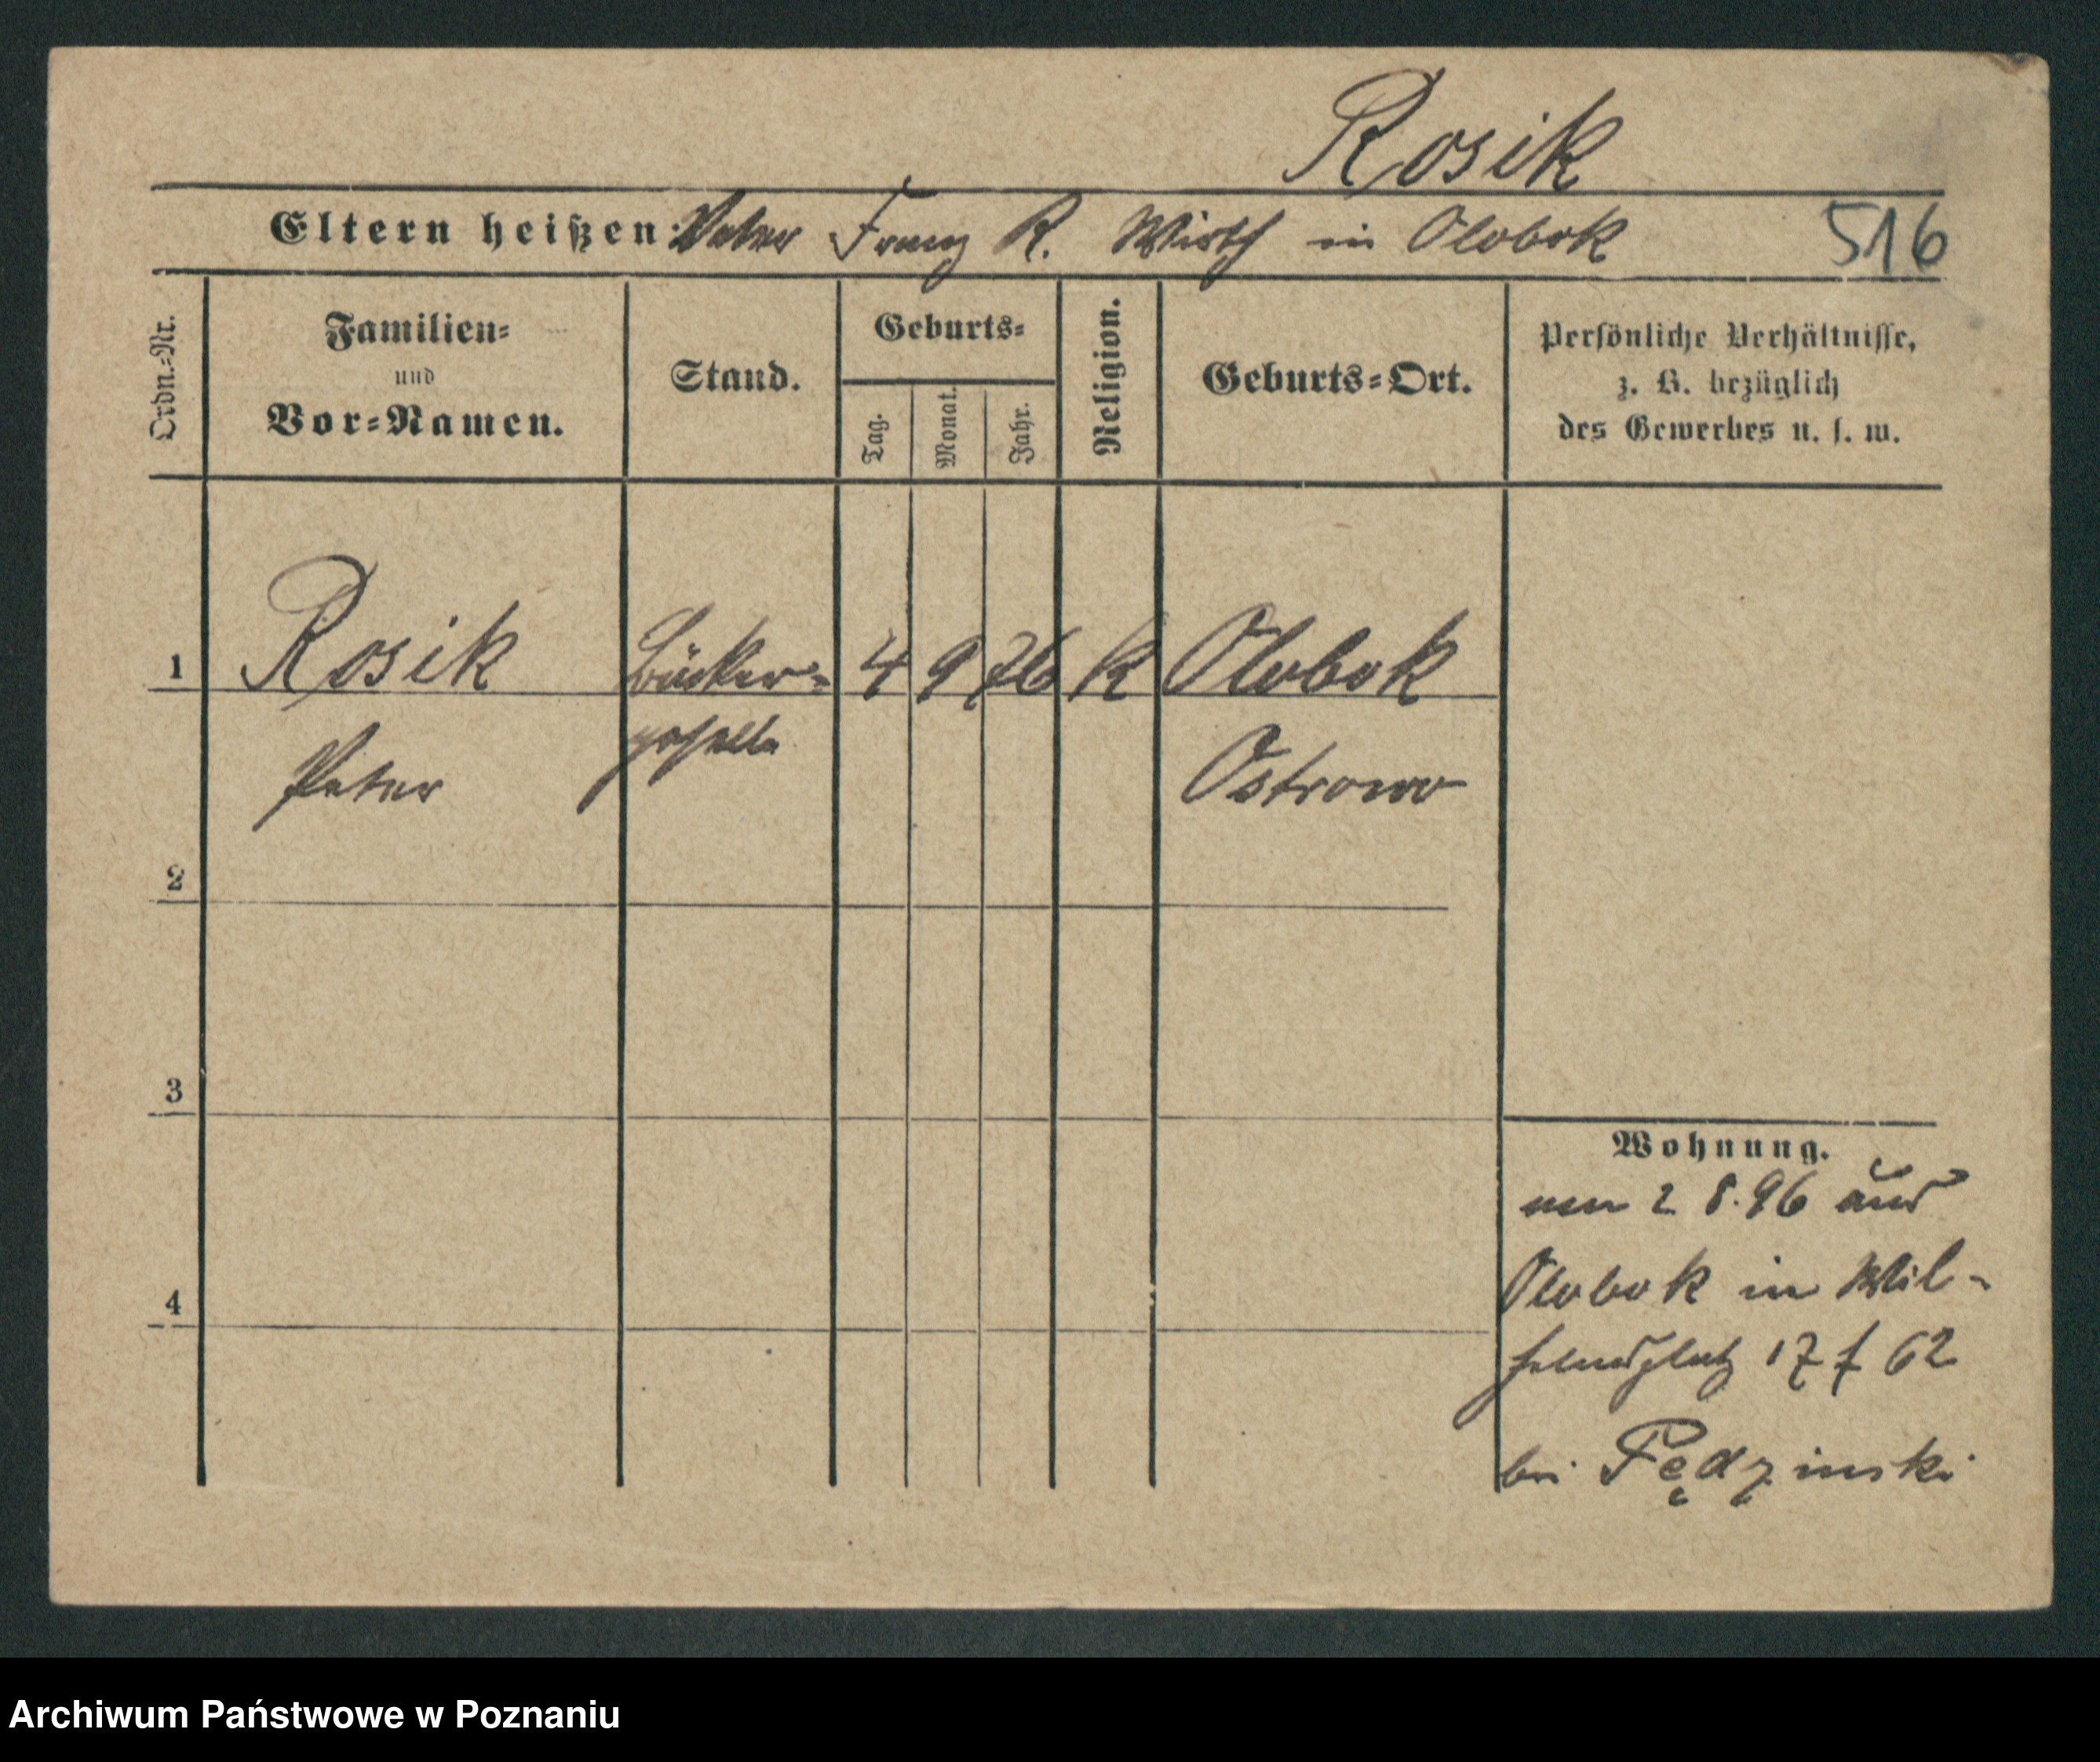 Rosik
Eltern heißen: Vater Franz R. Wirth in Olobok 516
Ordn.-Nr.
Familien-
und
Vor-Namen.
Stand.
Geburts-
Tag.
Monat.
Jahr.
Religion.
Geburts-Ort.
Persönliche Verhältnisse,
z. B. bezüglich
des Gewerbes u. s. w.
1 Rosik Bäcker- 4 9 76 K Olobok
geselle
Peter Ostrowo
2
3
4
Wohnung.
2 8. 96 aus
Olobok in Wil-
helmsplatz 17 f 62
bei Pędzinski
Archiwum Państwowe w Poznaniu